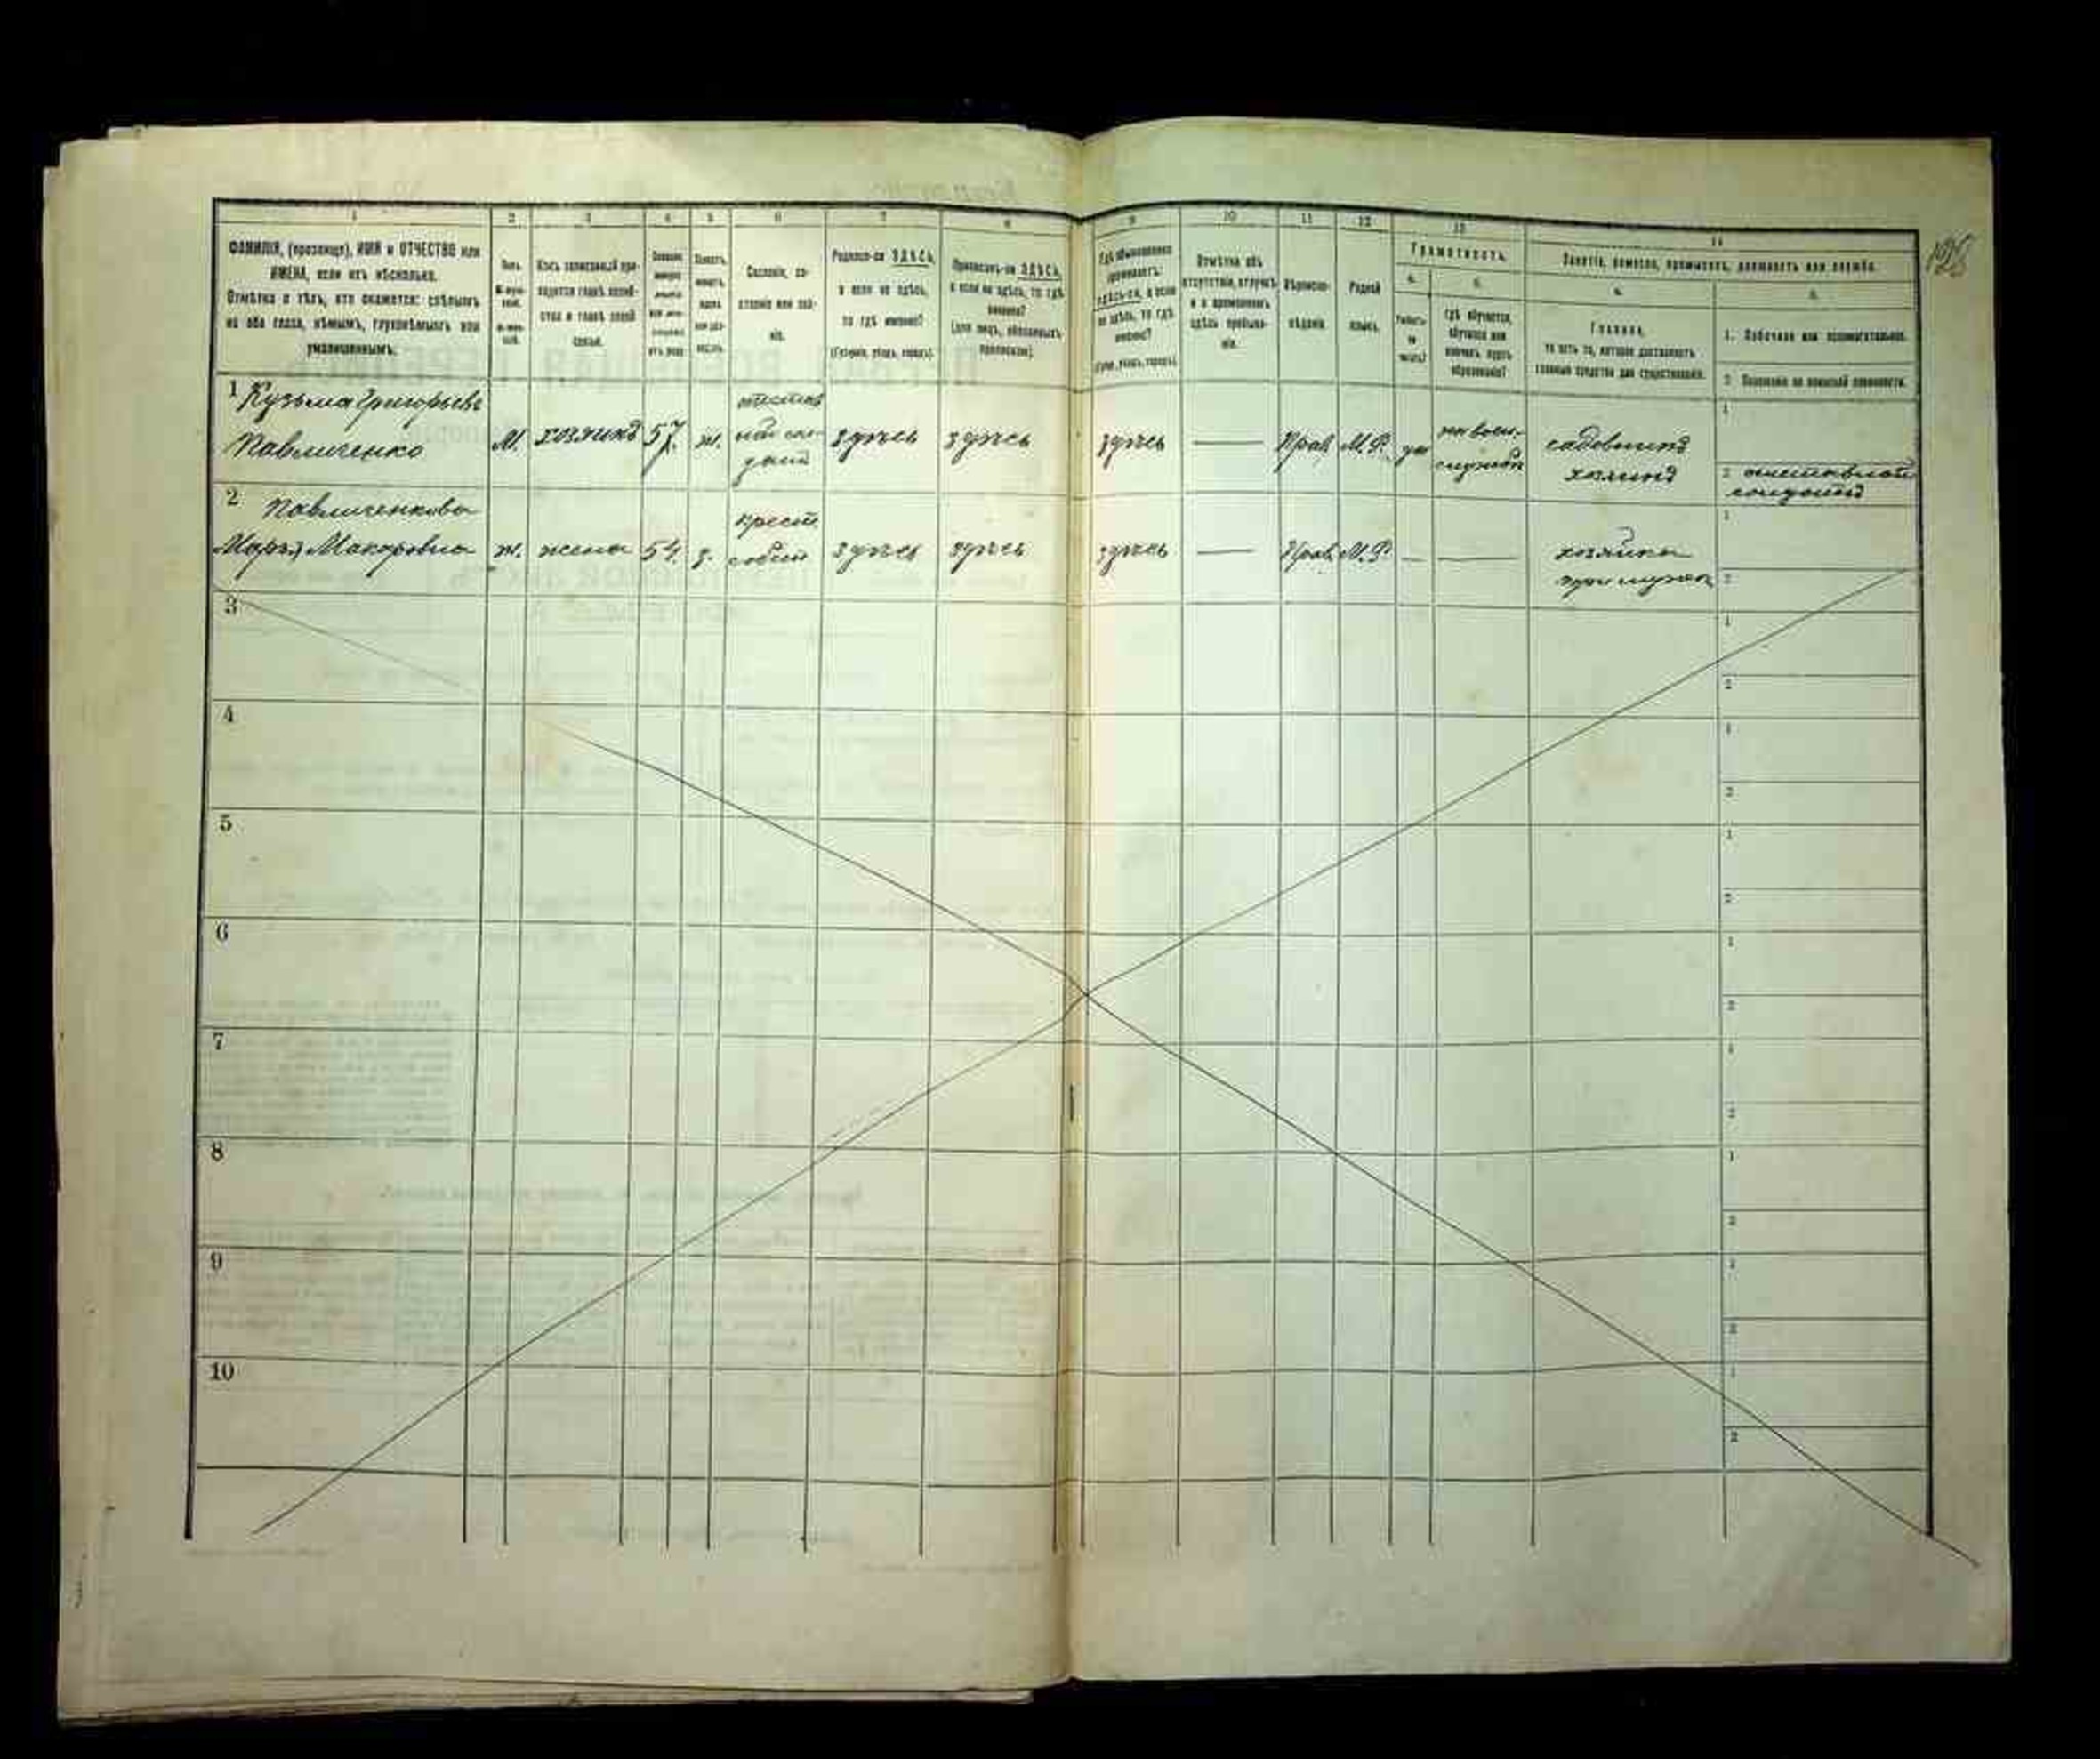 1 2 3 4 5 6 7 8 9 10 11 12 13 14
ФАМИЛІЯ, (прозвище), ИМЯ и ОТЧЕСТВО или
ИМЕНА, если ихъ нѣсколько.
Отмѣтка о тѣхъ, кто окажется: слѣпымъ
на оба глаза, нѣмымъ, глухонѣмымъ или
умалишеннымъ.
Полъ.
Какъ записанный при-
ходится главѣ хозяй-
ства и главѣ своей
семьи.
Сословіе, со-
стояніе или зва-
ніе.
Родился-ли ЗДѢСЬ,
а если не здѣсь,
то гдѣ именно?
(Губернія, уѣздъ, городъ).
Приписанъ-ли ЗДѢСЬ,
а если не здѣсь, то гдѣ
именно?
(для лицъ, обязанныхъ
припискою).
Гдѣ обыкновенно
проживаетъ:
здѣсь-ли, а если
не здѣсь, то гдѣ
именно?
(Губер., уѣздъ, городъ).
Отмѣтка объ
отсутствіи, отлучкѣ
и о временномъ
здѣсь пребыва-
ніи.
Вѣроиспо-
вѣданіе.
Родной
языкъ.
Грамотность.
а.
Умѣетъ-
ли
читать?
б.
Гдѣ обучается,
обучался или
кончилъ курсъ
образованія?
Занятіе, ремесло, промыселъ, должность или служба.
а.
Главное,
то есть то, которое доставляетъ
главныя средства для существованія.
б.
1. Побочное или вспомогательное.
2. Положеніе по воинской повинности.
128
1 Кузьма Григорьевъ
Павличенко
М. хозяинъ 57. ж.
отстав
ной сол-
датъ
здѣсь здѣсь здѣсь — Прав. М.Р. да
на воен.
службѣ
садовникъ
хозяинъ
1
2 отставной
солдатъ
2 Павличенкова
Марья Макаровна
ж. жена 54. з.
крест.
собств
здѣсь здѣсь здѣсь — Прав. М.Р. — —
хозяйка
при мужѣ
1
2
3
1
2
4
1
2
5
1
2
6
1
2
7
1
2
8
1
2
9
1
2
10
1
2